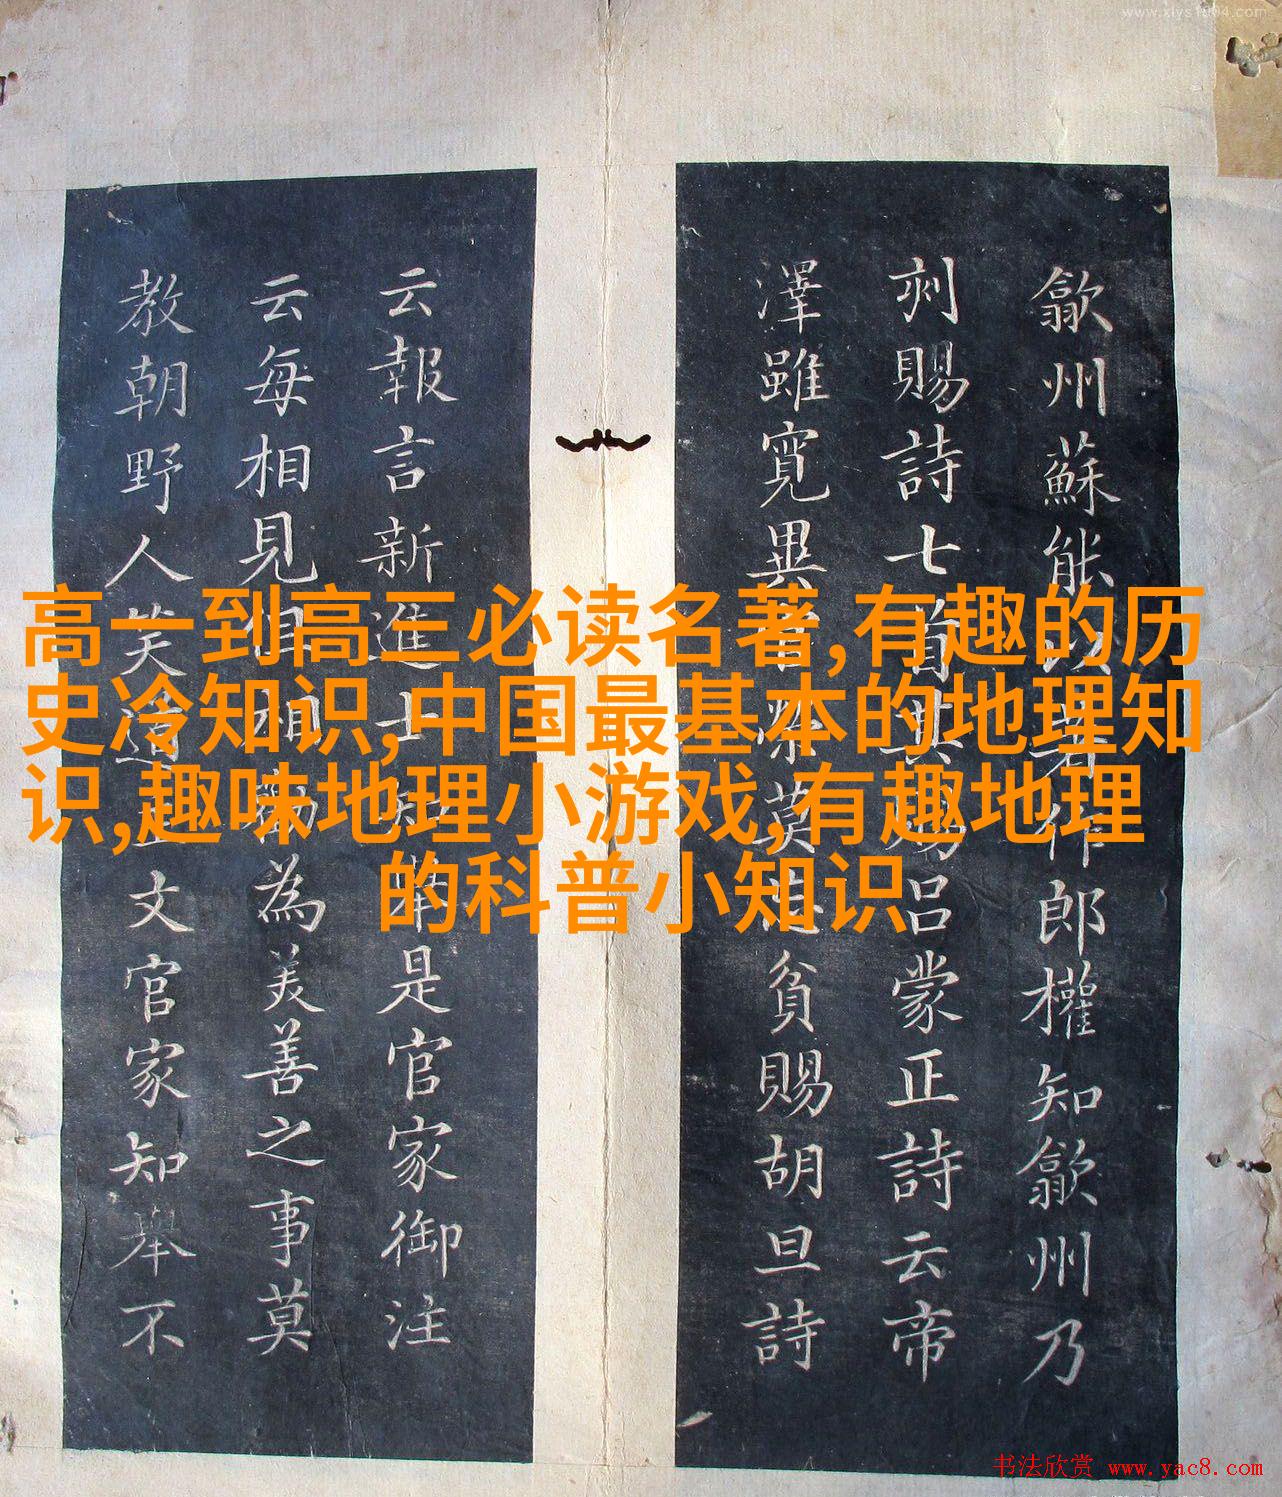 www.xlys1904.com
歙州蘇能以著作郎權知歙州乃
刻賜詩七首其賜呂蒙正詩云帝
澤雖寛異常倫莫忘貧賜胡旦詩
云報言新進士知舉是官家御注
云每相見但相勸為美善之事莫
教朝野人笑道正文官家知舉不
高一到高三必读名著,有趣的历
史冷知识,中国最基本的地理知
识,趣味地理小游戏,有趣地理
的科普小知识
书法欣赏 www.yac8.com